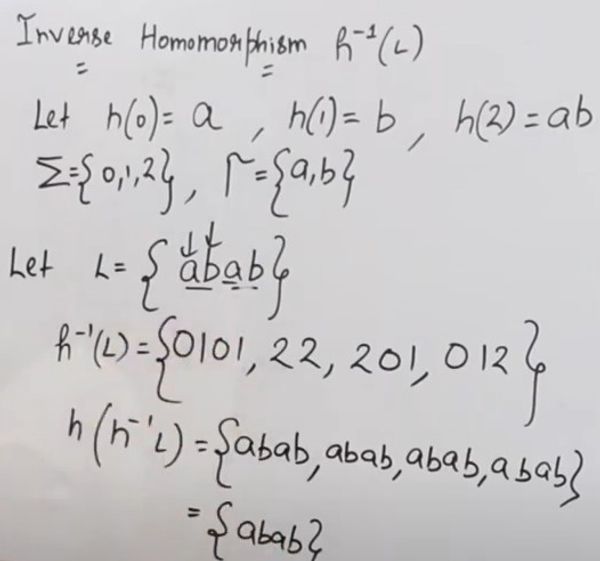 Inverse Homomorphism h⁻¹(L)
Let h(0)= a , h(1)= b , h(2)= ab
Σ={0,1,2} , Γ={a,b}
Let L= { abab}
h⁻¹(L) ={0101, 22, 201, 012 }
h(h⁻¹L) ={abab, abab, abab, abab}
= {abab}